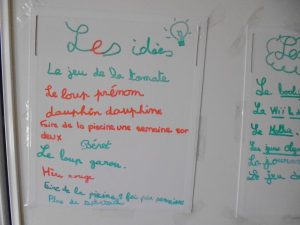 Les idées
Le jeu de la tomate
Le loup prénom
dauphin dauphine
Faire de la piscine une semaine sur
deux
Béret
Le loup garou.
Mère rouge
Faire de la piscine 2 fois par semaine
Plus de
Les
Le
La Wii
Le
Les jeux
La journée
Le jeu